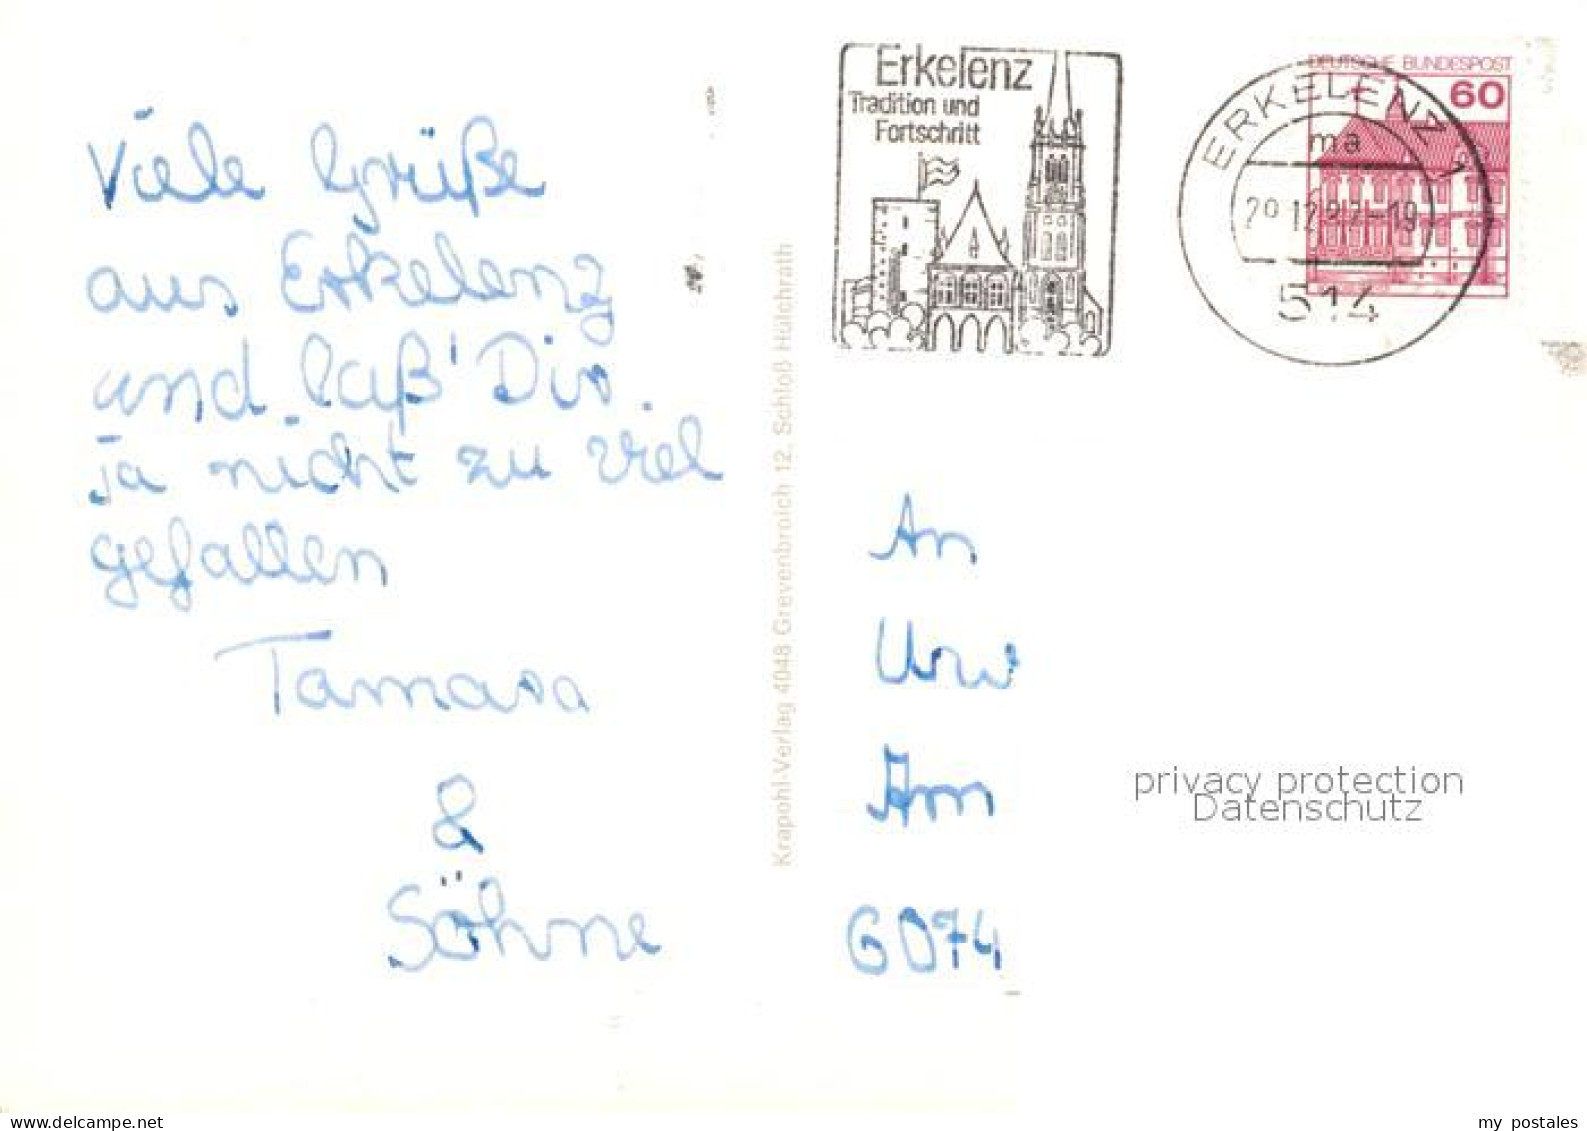 Viele Grüße
aus Erkelenz
und laß' Dir
ja nicht zu viel
gefallen
Tamara
&
Söhne
Krapohl-Verlag 4048 Grevenbroich 12, Schloß Hülchrath
Erkelenz
Tradition und
Fortschritt
DEUTSCHE BUNDESPOST
60
ERKELENZ 1
ma
514
An
Am
6074
privacy protection
Datenschutz
www.ansichtskarten-center.de
my postales